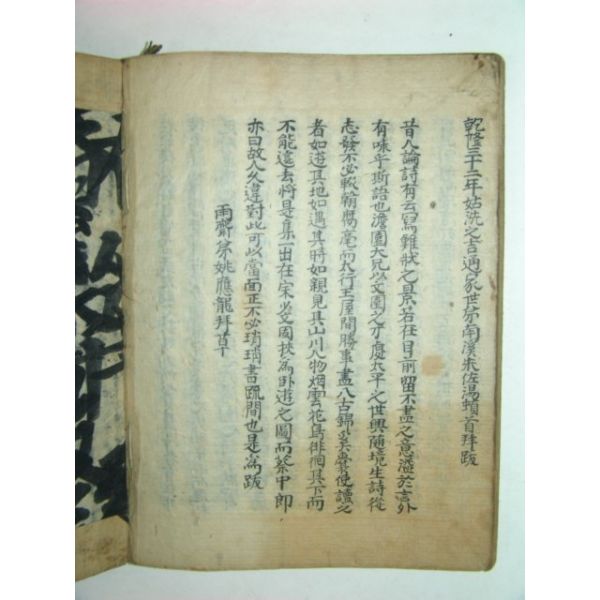 乾隆三十二年姑洗之吉通家世弟南溪朱佐湯頓首拜跋
昔人論詩有云寫難狀之景若在目前留不盡之意溢於言外
有味乎斯語也澹園大兄以文園之才慶太平之世興隨境生詩從
志發不必輟翰腐毫而太行王屋間勝事盡入古錦囊使讀之
者如遊其地如遇其時如親見其山川人物烟雲花鳥徘徊其下而
不能遽去將是集一出在宋必文園披為卧遊之圖而蔡中郎
亦曰故人久違對此可以當面正不必瑣瑣書䟽間也是為跋
雨齋弟姚應龍拜草